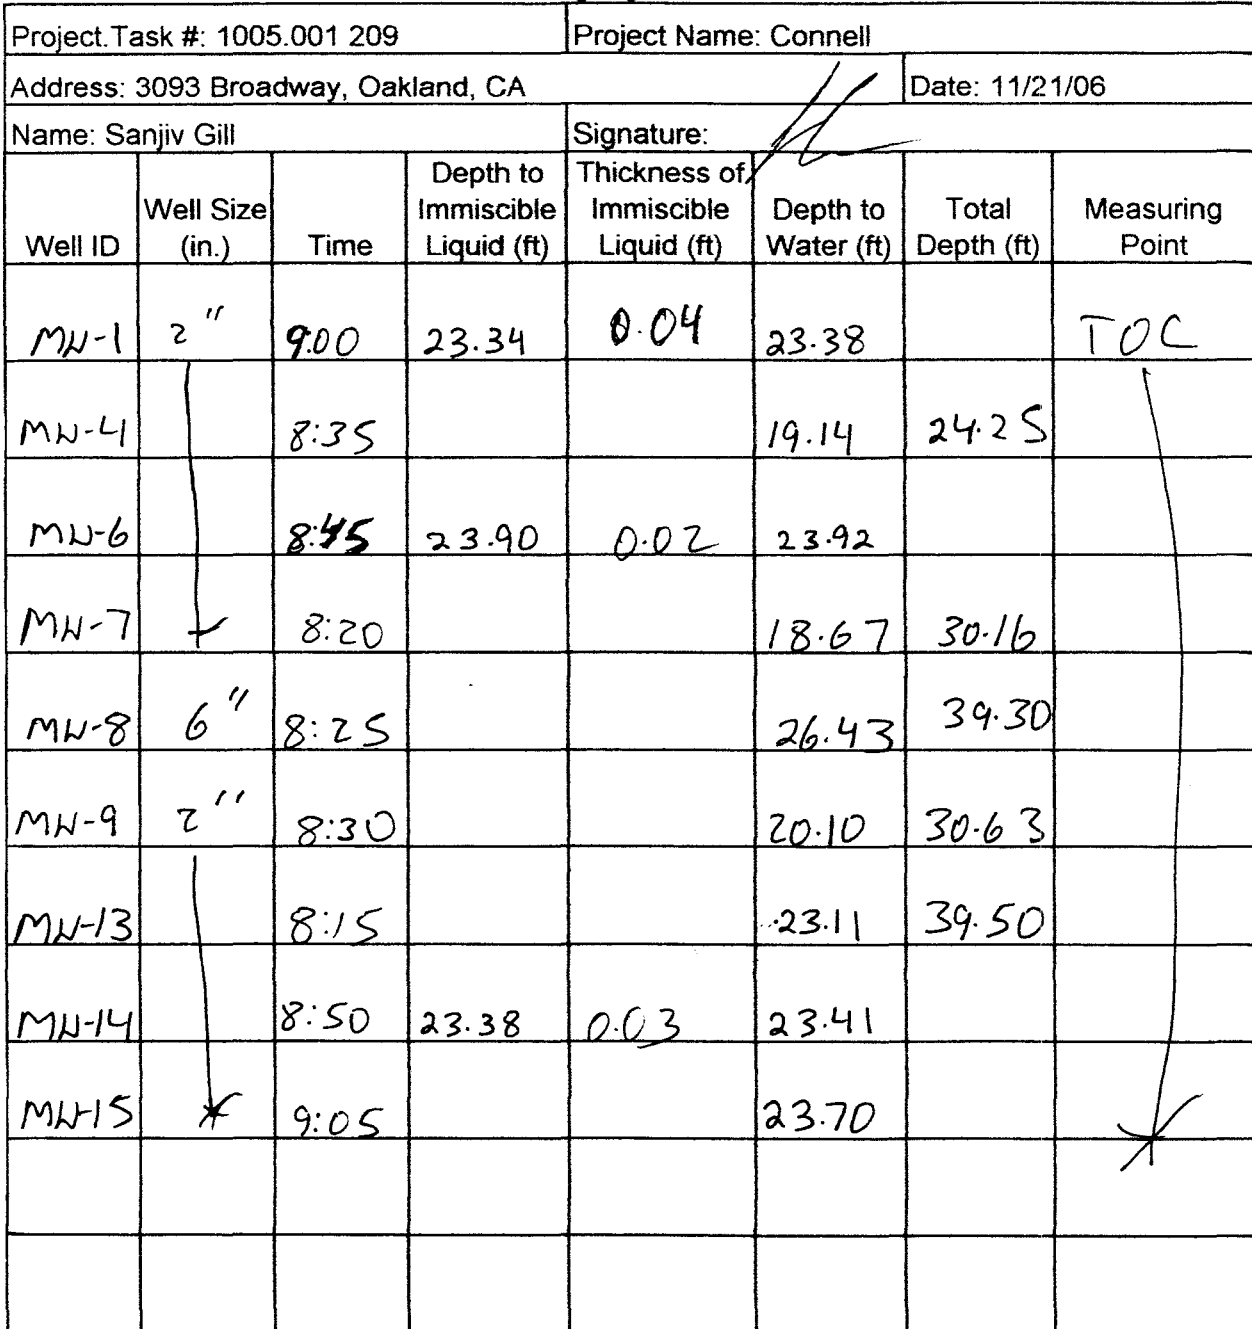 Project.Task #: 1005.001 209 Project Name: Connell
Address: 3093 Broadway, Oakland, CA Date: 11/21/06
Name: Sanjiv Gill Signature:
Well ID Well Size (in.) Time Depth to Immiscible Liquid (ft) Thickness of Immiscible Liquid (ft) Depth to Water (ft) Total Depth (ft) Measuring Point
MW-1 2" 9:00 23.34 0.04 23.38 TOC
MW-4 8:35 19.14 24.25
MW-6 8:45 23.90 0.02 23.92
MW-7 8:20 18.67 30.16
MW-8 6" 8:25 26.43 39.30
MW-9 2" 8:30 20.10 30.63
MW-13 8:15 23.11 39.50
MW-14 8:50 23.38 0.03 23.41
MW-15 9:05 23.70